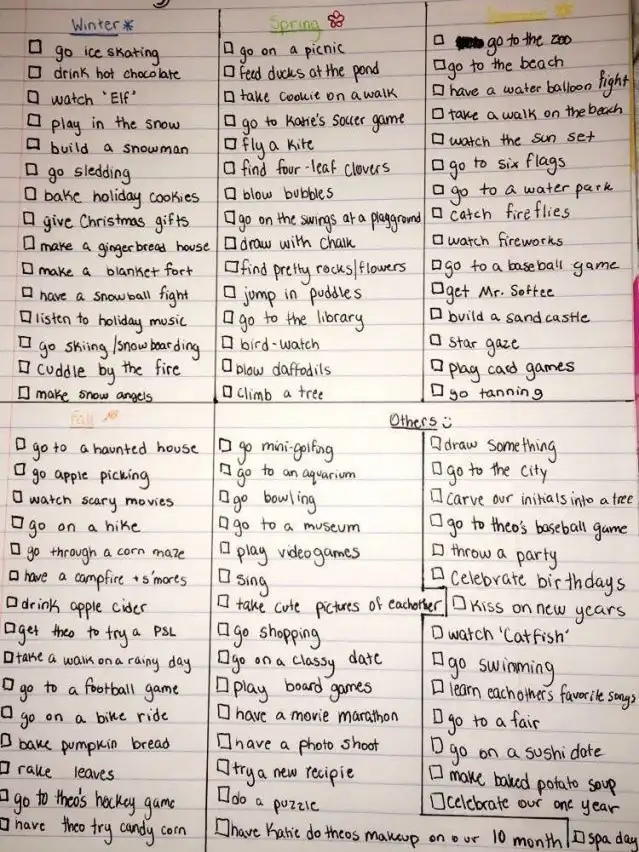 Winter
go ice skating
drink hot chocolate
watch 'Elf'
play in the snow
build a snowman
go sledding
bake holiday cookies
give Christmas gifts
make a gingerbread house
make a blanket fort
have a snowball fight
listen to holiday music
go skiing/snowboarding
cuddle by the fire
make snow angels
Spring
go on a picnic
feed ducks at the pond
take cookie on a walk
go to Katie's soccer game
fly a kite
find four-leaf clovers
blow bubbles
go on the swings at a playground
draw with chalk
find pretty rocks/flowers
jump in puddles
go to the library
bird-watch
blow daffodils
climb a tree
go to the zoo
go to the beach
have a water balloon fight
take a walk on the beach
watch the sun set
go to six flags
go to a water park
catch fireflies
watch fireworks
go to a baseball game
get Mr. Softee
build a sandcastle
star gaze
play card games
go tanning
Fall
go to a haunted house
go apple picking
watch scary movies
go on a hike
go through a corn maze
have a campfire + s'mores
drink apple cider
get theo to try a PSL
take a walk on a rainy day
go to a football game
go on a bike ride
bake pumpkin bread
rake leaves
go to theo's hockey game
have theo try candy corn
Others
go mini-golfing
go to an aquarium
go bowling
go to a museum
play videogames
sing
take cute pictures of eachother
go shopping
go on a classy date
play board games
have a movie marathon
have a photo shoot
try a new recipie
do a puzzle
have Katie do theos makeup on our 10 month
draw something
go to the city
carve our initials into a tree
go to theo's baseball game
throw a party
celebrate birthdays
kiss on new years
watch 'Catfish'
go swimming
learn eachothers favorite songs
go to a fair
go on a sushi date
make baked potato soup
celebrate our one year
spa day